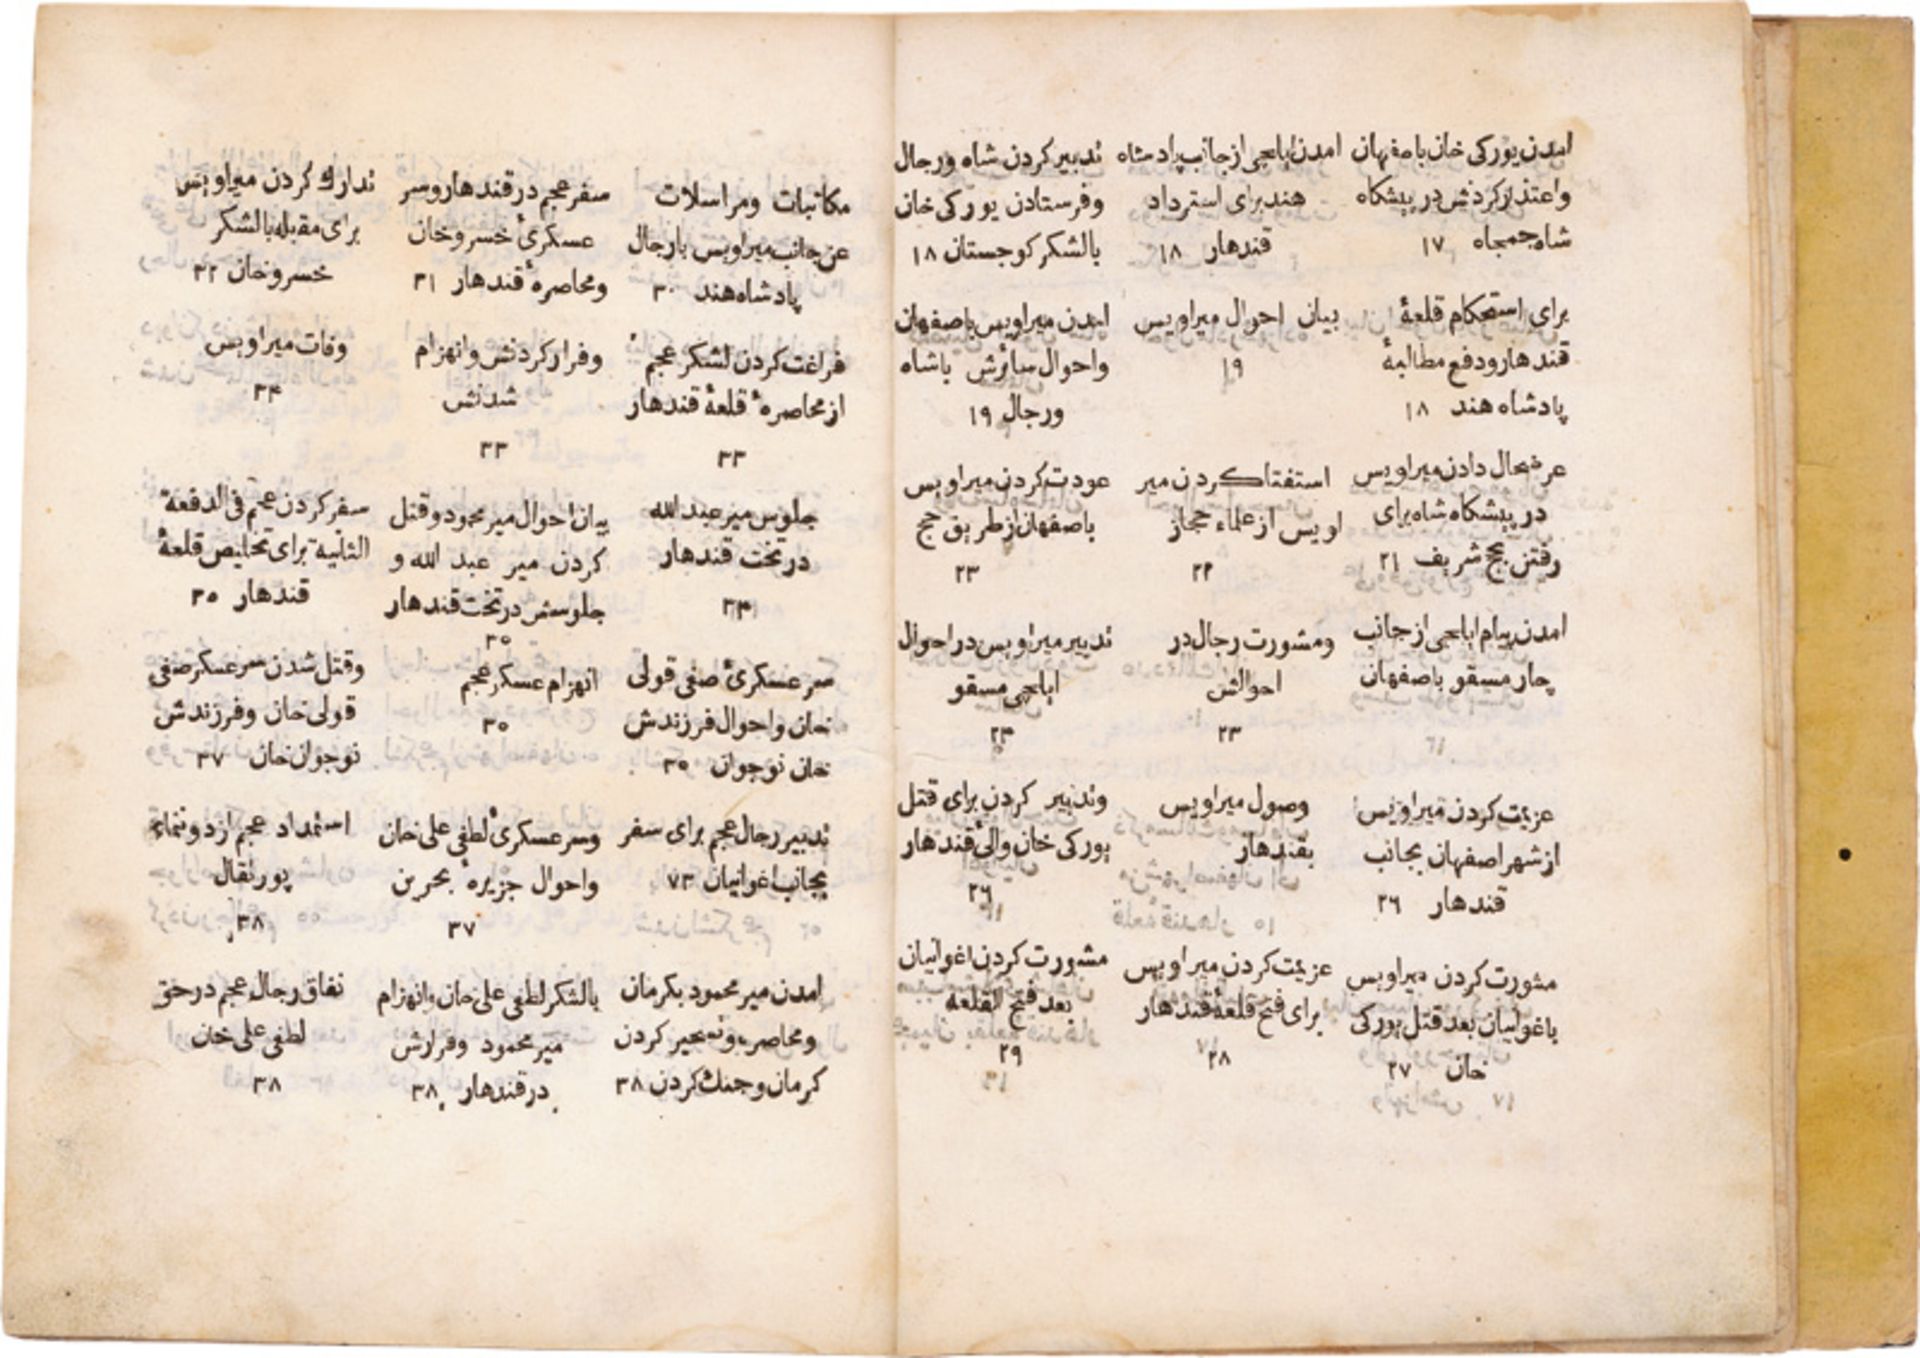 امدن یورکی خان باصفهان
واعتذار کردنش در پیشکاه
شاه جمجاه ۱۷
امدن ایاچی از جانب پادشاه
هند برای استرداد
قندهار ۱۸
تدبیر کردن شاه ورجال
وفرستادن یورکی خان
بالشکر کوجستان ۱۸
برای استحکام قلعۀ
قندهار ودفع مطالبۀ
پادشاه هند ۱۸
بیان احوال میراویس
۱۹
امدن میراویس باصفهان
واحوال سائرش باشاه
ورجال ۱۹
عرضحال دادن میراویس
در پیشکاه شاه برای
رفتن بحج شریف ۲۱
استفتا کردن میر
اویس از علماء حجاز
۲۲
عودت کردن میراویس
باصفهان از طریق حج
۲۳
امدن پیام ایاچی از جانب
چار مسقو باصفهان
ومشورت رجال در
احوالش
۲۳
تدبیر میراویس در احوال
ایاچی مسقو
۲۳
عزیمت کردن میراویس
از شهر اصفهان بجانب
قندهار ۲۶
وصول میراویس
بقندهار
وتدبیر کردن برای قتل
یورکی خان والئ قندهار
۲۶
مشورت کردن میراویس
باغوانیان بعد قتل یورکی
خان ۲۷
عزیمت کردن میراویس
برای فتح قلعۀ قندهار
۲۸
مشورت کردن اغوانیان
بعد فتح القلعه
۲۹
مکاتبات ومراسلات
عن جانب میراویس بارجال
پادشاه هند ۳۰
سفر عجم در قندهار وسر
عسکرئ خسرو خان
ومحاصرۀ قندهار ۳۱
تدارك کردن میراویس
برای مقبله بالشکر
خسرو خان ۳۲
فراغت کردن لشکر عجم
از محاصرۀ قلعۀ قندهار
۳۳
وفرار کردنش وانهزام
شدنش
۳۳
وفات میراویس
۳۴
جلوس میر عبد الله
در تخت قندهار
۳۴
بیان احوال میر محمود وقتل
کردن میر عبد الله و
جلوسش در تخت قندهار
۳۵
سفر کردن عجم فی الدفعة
الثانیة برای تخلیص قلعۀ
قندهار ۳۵
سر عسکرئ صفی قولی
خان واحوال فرزندش
خان نوجوان ۳۵
انهزام عسکر عجم
۳۵
وقتل شدن سر عسکر صفی
قولی خان وفرزندش
نوجوان خان ۳۷
تدبیر رجال عجم برای سفر
بجانب اغوانیان ۷۳
وسر عسکرئ لطفی علی خان
واحوال جزیرۀ بحرین
۳۷
استمداد عجم از دونمای
پورتقال
۳۸
امدن میر محمود بکرمان
ومحاصره وتسخیر کردن
کرمان وجنك کردن ۳۸
بالشکر لطفی علی خان وانهزام
میر محمود وفرارش
در قندهار ۳۸
نفاق رجال عجم در حق
لطفی علی خان
۳۸